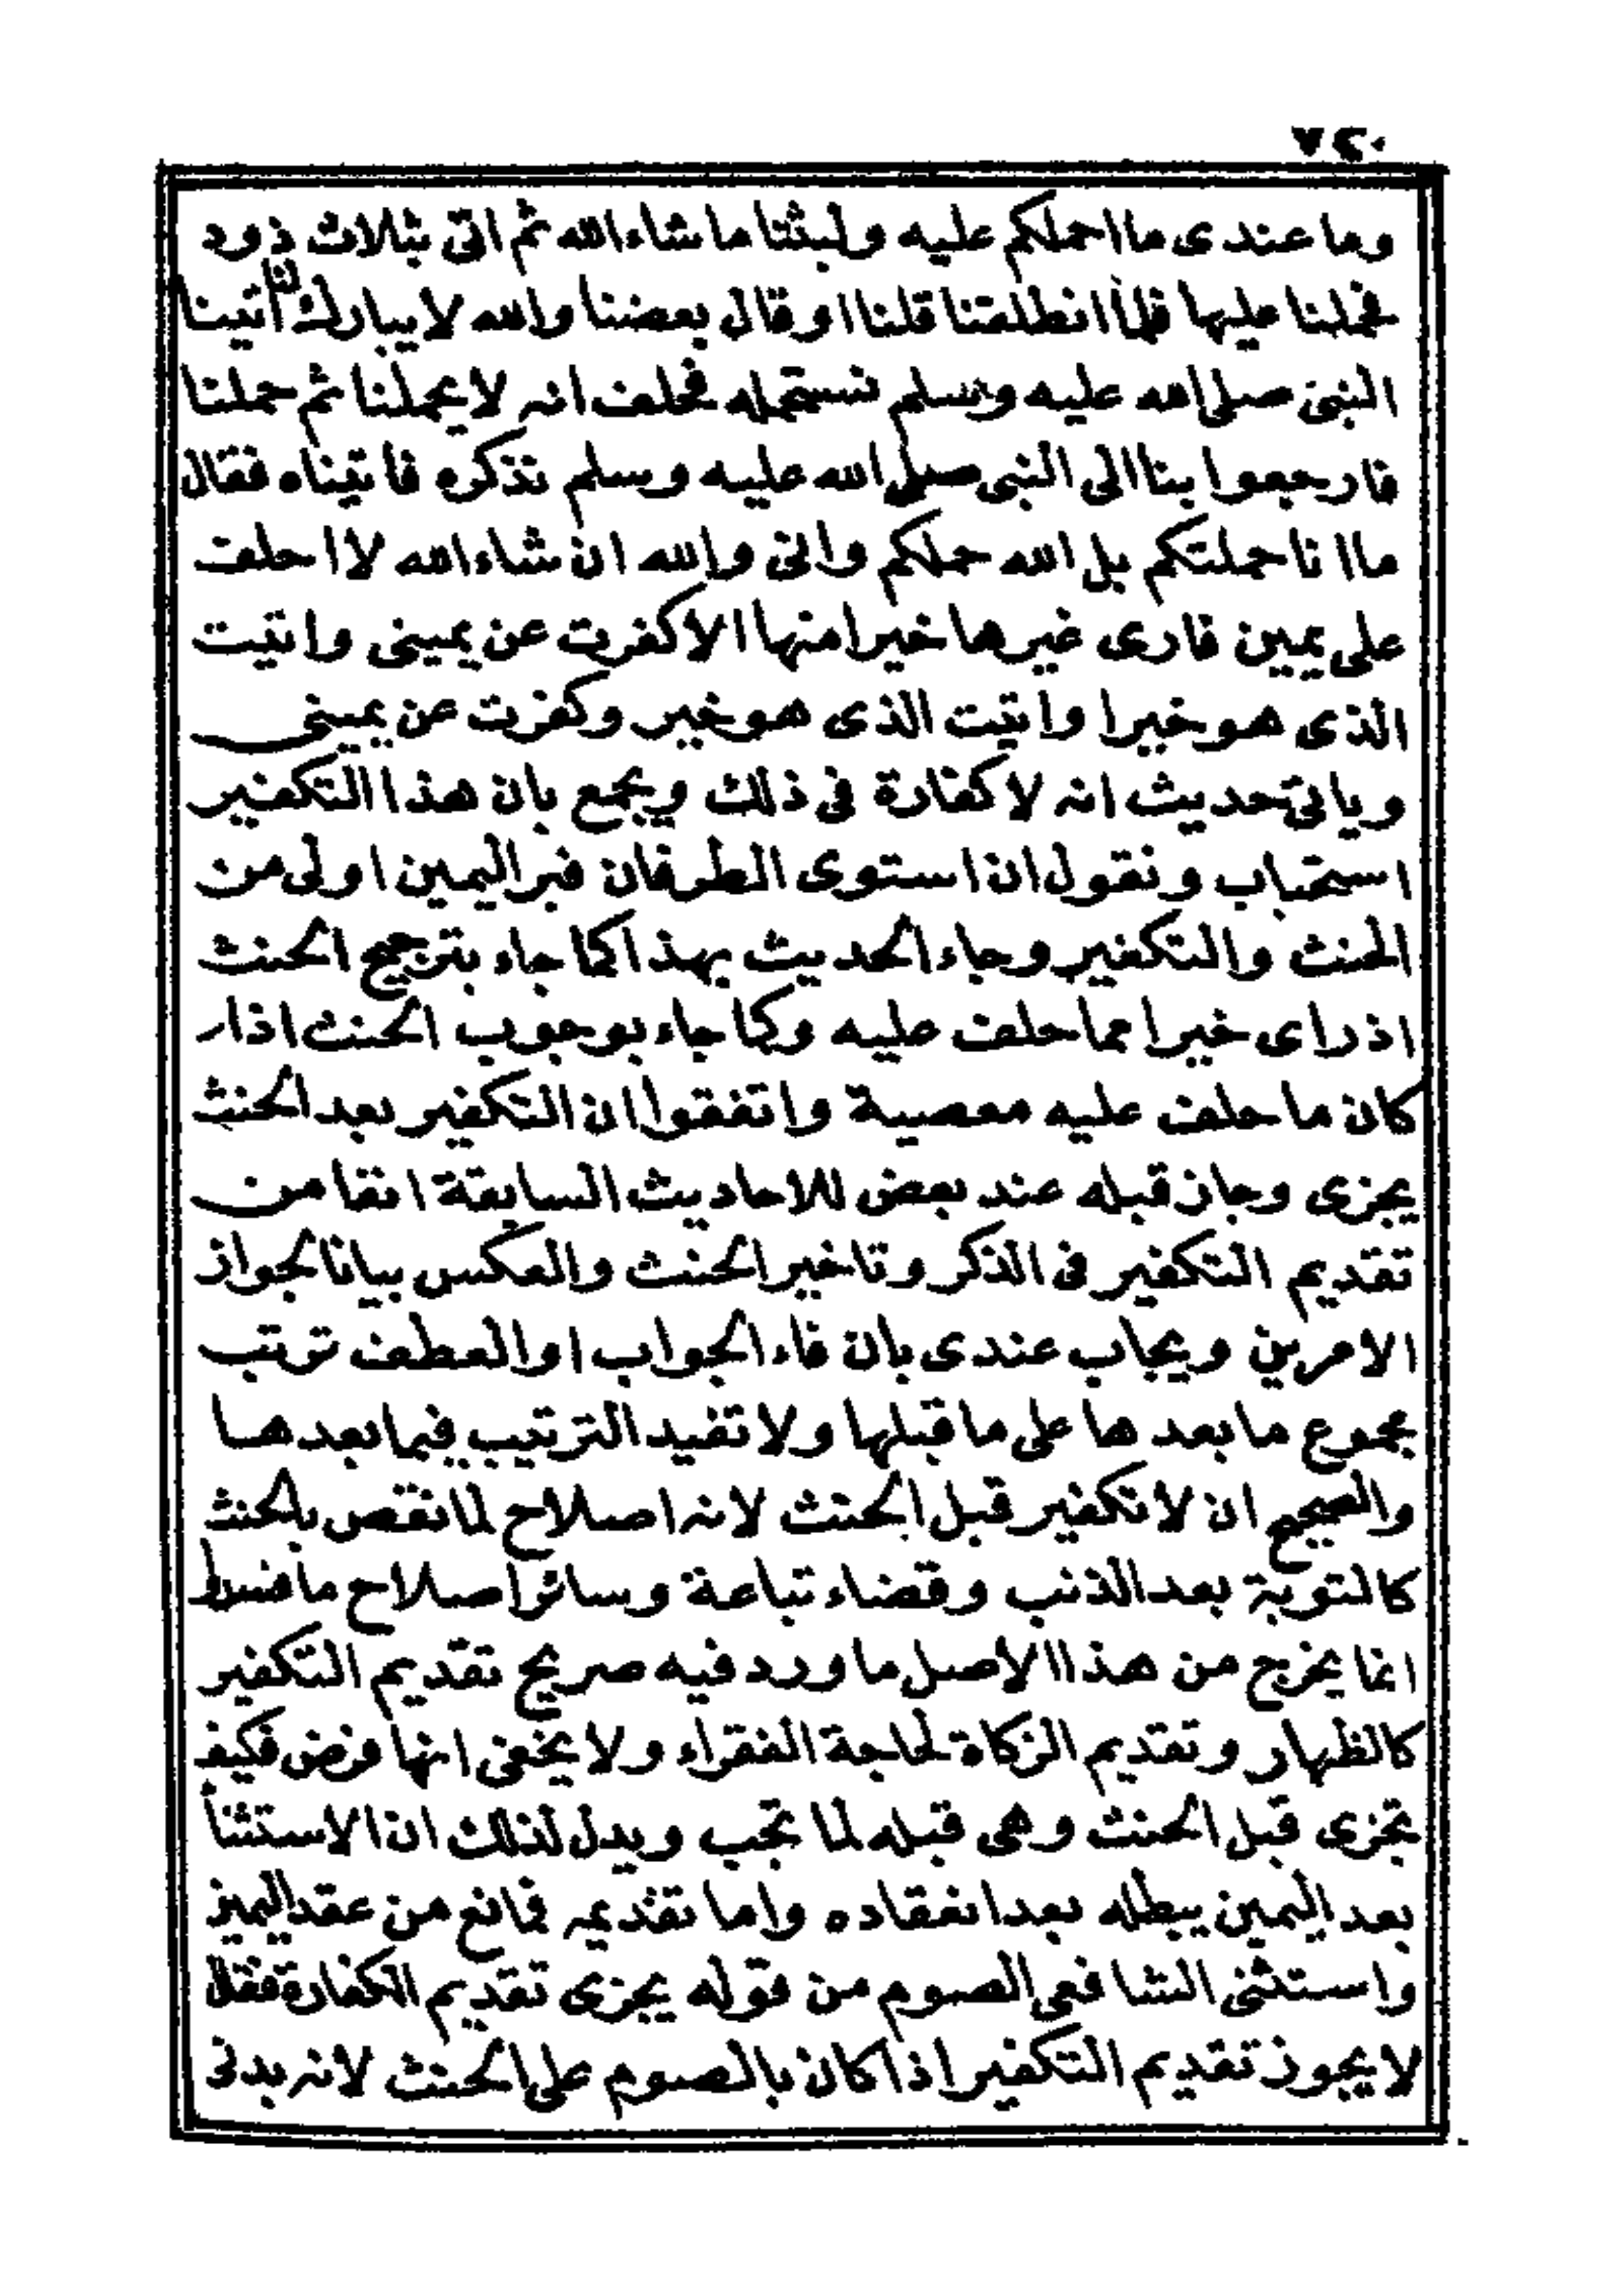 ٧٤٠
وما عندى ما احملكم عليه ولبثنا ما شاء الله ثم اتى بثلاث ذود
فحملنا عليها فلما انطلقنا قلنا او قال بعضنا والله لا يبارك لنا اتينا
النبى صلى الله عليه وسلم نستحمله فحلف انه لا يحملنا ثم حملنا
فارجعوا بنا الى النبى صلى الله عليه وسلم نذكره فاتيناه فقال
ما انا حملتكم بل الله حملكم وانى والله ان شاء الله لا احلف
على يمين فارى غيرها خيرا منها الا كفرت عن يمينى واتيت
الذى هو خيرا واتيت الذى هو خير وكفرت عن يمينى
وياتى حديث انه لا كفارة فى ذلك ويجمع بان هذا التكفير
استحباب ونقول ان استوى الطرفان فبر اليمين اولى من
الحنث والتكفير وجاء الحديث بهذا كما جاء بترجيح الحنث
اذ راى خيرا مما حلف عليه وكما جاء بوجوب الحنث اذار
كان ما حلف عليه معصية واتفقوا ان التكفير بعد الحنث
يجزى وجاز قبله عند بعض للاحاديث السابقة انفا من
تقديم التكفير فى الذكر وتاخير الحنث والعكس بيانا لجواز
الامرين ويجاب عندى بان فاء الجواب او العطف ترتب
مجموع ما بعدها على ما قبلها ولا تفيد الترتيب فيما بعدها
والصحيح ان لا تكفير قبل الحنث لانه اصلاح لما نقص بالحنث
كالتوبة بعد الذنب وقضاء تباعة وسائر اصلاح ما فسد
انما يخرج من هذا الاصل ما ورد فيه صريح تقديم التكفير
كالظهار وتقديم الزكاة لحاجة الفقراء ولا يخفى انها فرض فكيف
تجزى قبل الحنث وهى قبله لما تجب ويدل لذلك ان الاستثنا
بعد اليمين يبطله بعد انعقاده واما تقديمه فمانع من عقد اليمين
واستثنى الشافعى الصوم من قوله يجزى تقديم الكفارة فقال
لا يجوز تقديم التكفير اذا كان بالصوم على الحنث لانه بدنى